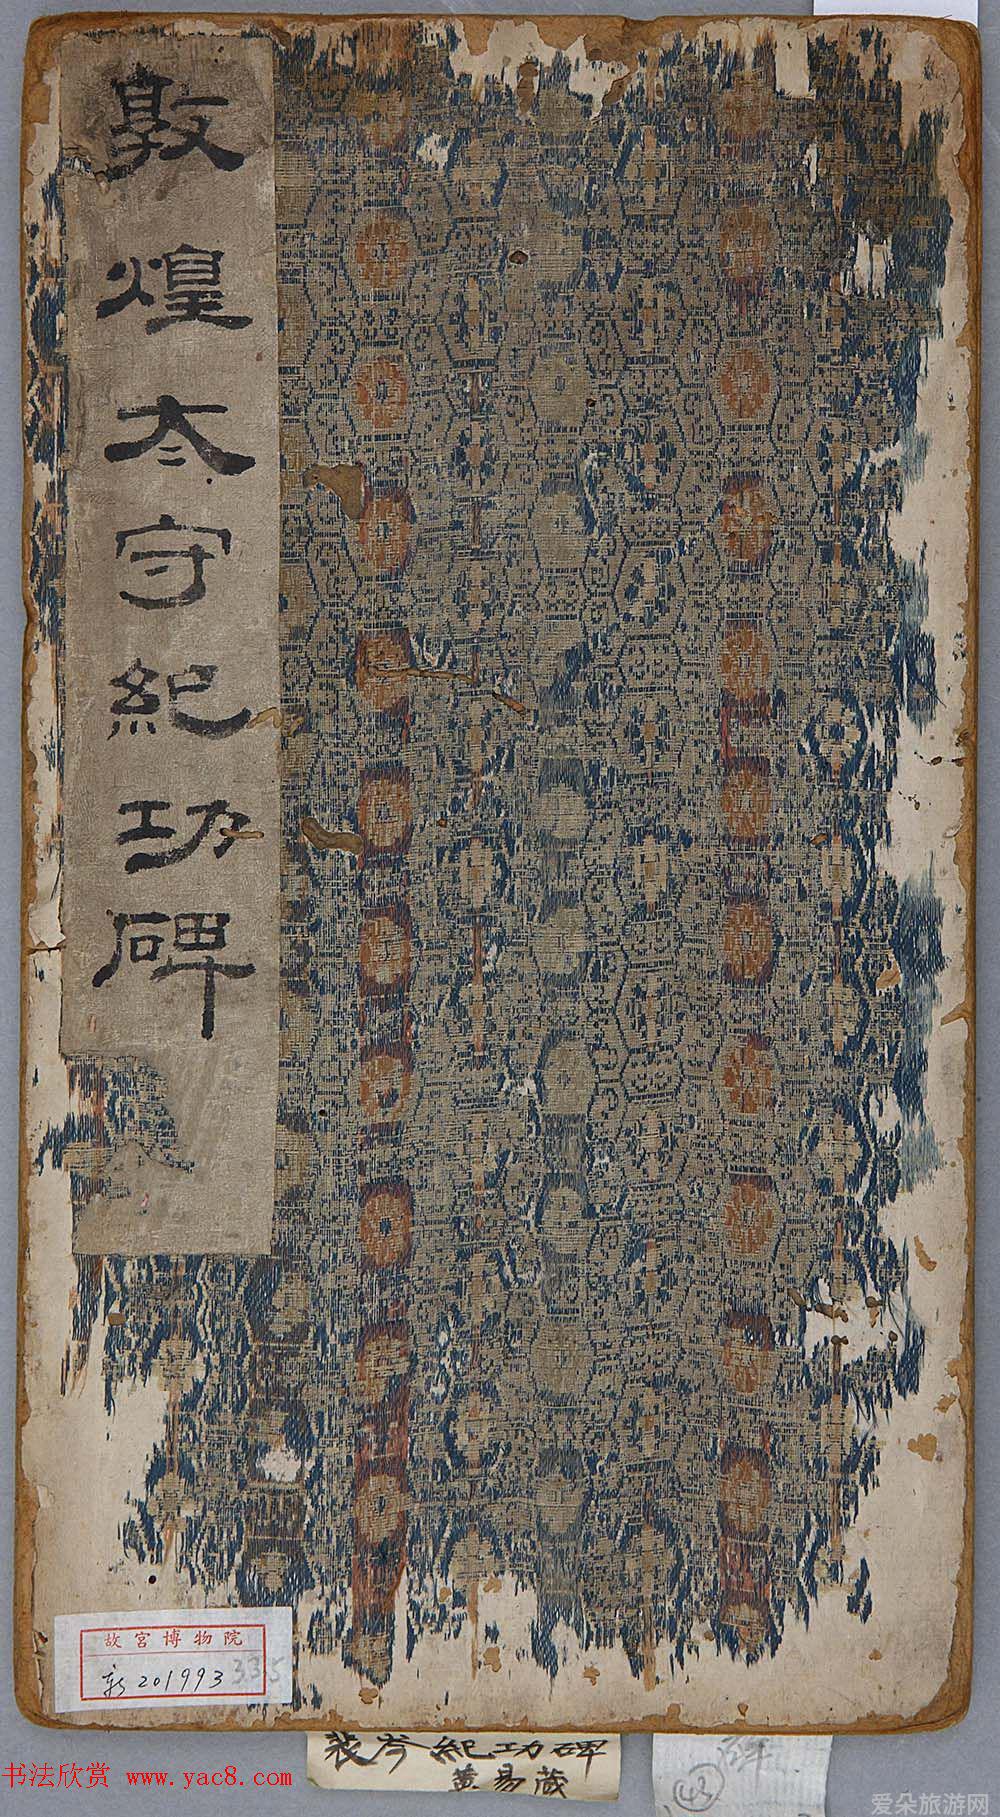 敦煌太守紀功碑
故宮博物院
新201993
335
裴岑紀功碑
黄易藏
43
书法欣赏 www.yac8.com
爱朵旅游网